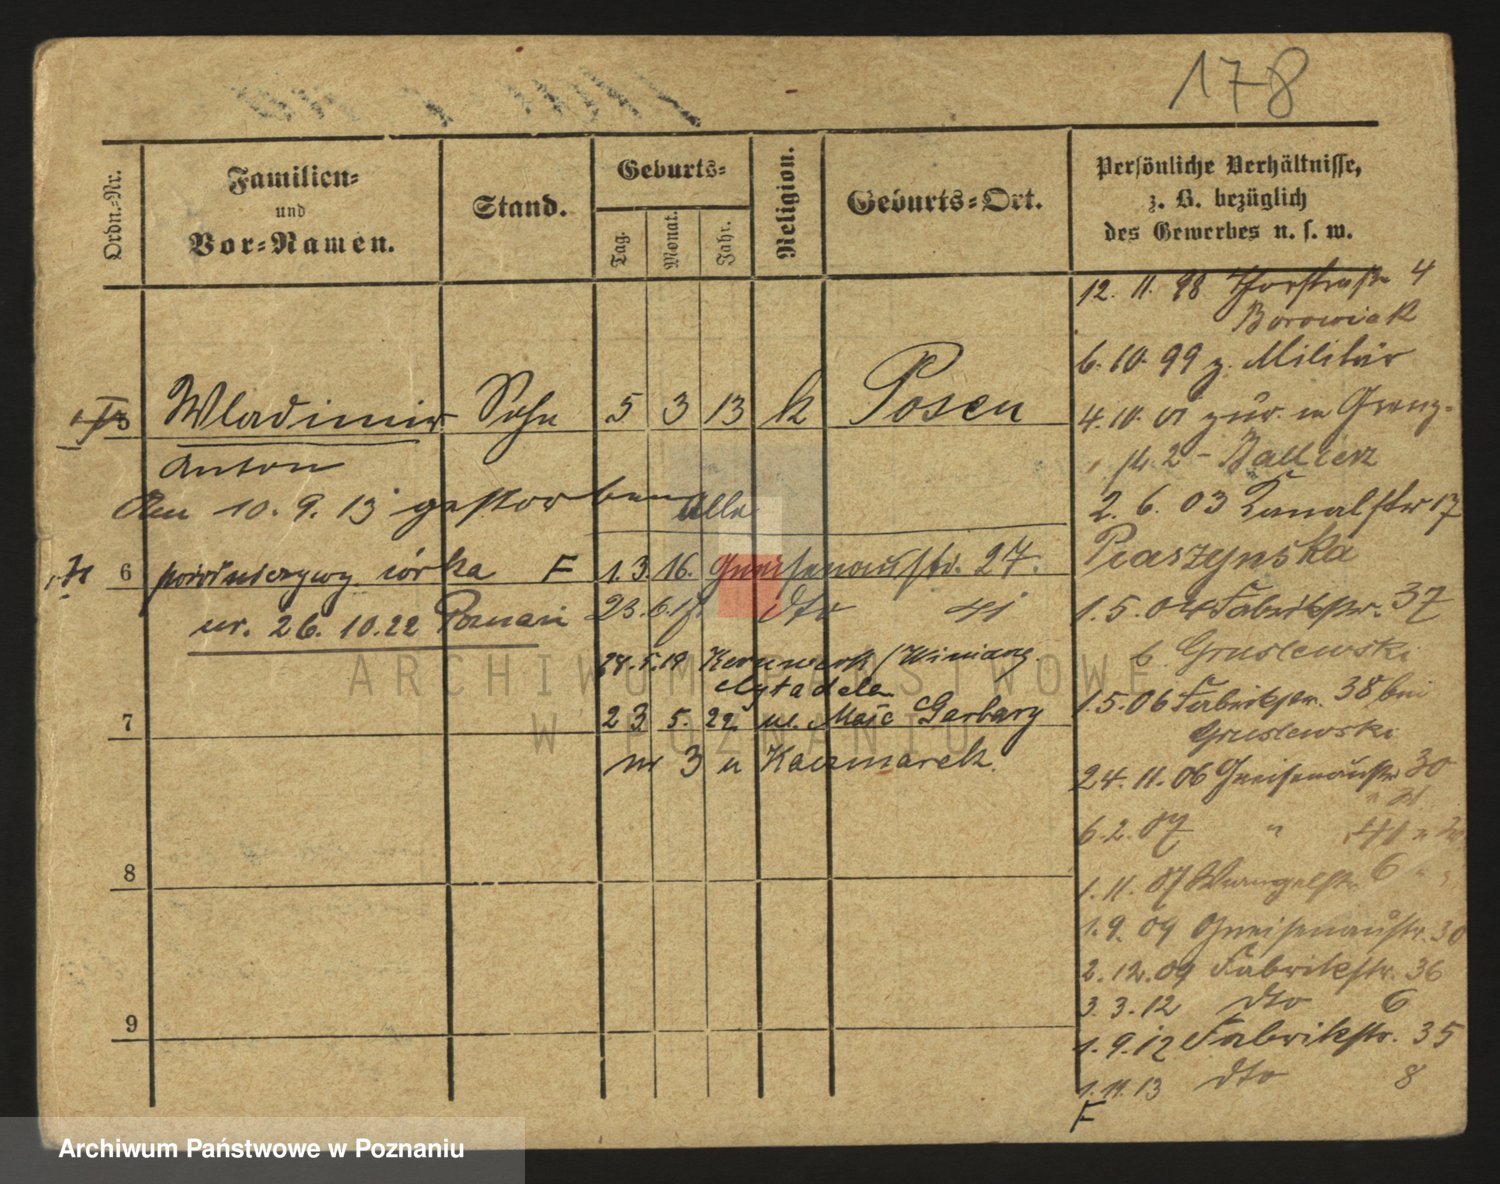 178
Ordn.-Nr.
Familien-
und
Vor-Namen.
Stand.
Geburts-
Tag.
Monat.
Jahr.
Religion.
Geburts-Ort.
Persönliche Verhältnisse,
z. B. bezüglich
des Gewerbes u. s. w.
Wladimir Sohn 5 3 13 k Posen
Anton
Den 10. 9. 13 gestorben
Alle
6 córka F 1. 3. 16. Gneisenaustr. 27.
ur. 26. 10. 22 Poznań
23. 6. dto
24. 5. 19 Kernwerk / Winiary
Cytadela
7 23 5. 22 ul. Małe Garbary
nr 3 u Kaczmarek.
8
9
12. 11. 98 Thorstraße 4
Borowiak
6. 10. 99 z. Militär
4. 10. 01 zur. in Grenz-
2. 6. 03 Kanalstr 17
Piaszyńska
1. 5. 04 Fabrikstr. 37
b. Gruslewski
1. 5. 06 Fabrikstr. 38 bei
Gruslewski
24. 11. 06 Gneisenaustr 30
6. 2. 07 "
1. 11. 07 Wrangelstr. 6 " "
1. 9. 09 Gneisenaustr. 30
2. 12. 09 Fabrikstr. 36
3. 3. 12 dto 6
1. 9. 12 Fabrikstr. 35
1. 11. 13 dto 8
F
ARCHIWUM PAŃSTWOWE
W POZNANIU
Archiwum Państwowe w Poznaniu